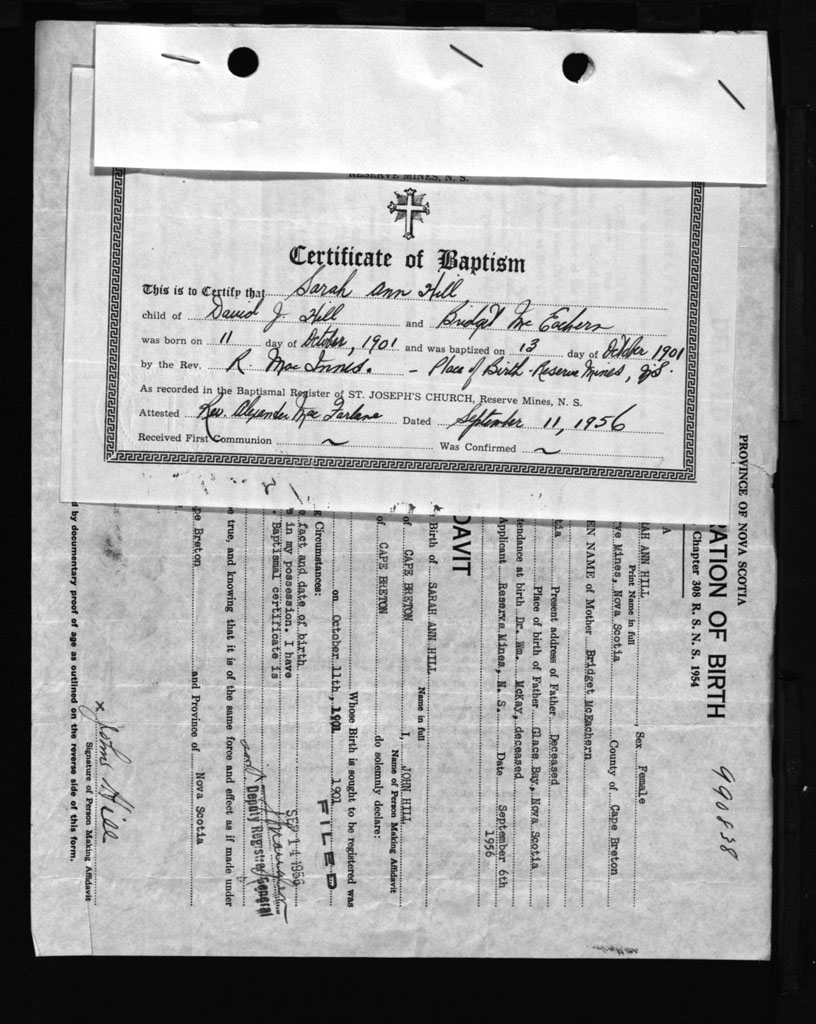 RESERVE MINES, N. S.
Certificate of Baptism
This is to Certify that Sarah Ann Hill
child of David J. Hill and Bridget Mc Eachern
was born on 11 day of October, 1901 and was baptized on 13 day of October 1901
by the Rev. R. Mac Innis. - Place of Birth - Reserve Mines, N.S.
As recorded in the Baptismal Register of ST. JOSEPH'S CHURCH, Reserve Mines, N. S.
Attested Rev. Alexander Mac Farlane Dated September 11, 1956
Received First Communion ~ Was Confirmed ~
PROVINCE OF NOVA SCOTIA
RATION OF BIRTH
Chapter 308 R. S. N. S. 1954
990838
AH ANN HILL, Sex Female
Print Name in full
ve Mines, Nova Scotia County of Cape Breton
EN NAME of Mother Bridget McEachern
tia Present address of Father Deceased
Place of birth of Father Glace Bay, Nova Scotia
tendance at birth Dr. Wm. McKay, deceased
Applicant Reserve Mines, N. S. Date September 6th
1956
DAVIT
Birth of SARAH ANN HILL
Name in full
of CAPE BRETON I, JOHN HILL
Name of Person Making Affidavit
of CAPE BRETON do solemnly declare:
Whose Birth is sought to be registered was
on October 11th, 1901 1901
Circumstances:
FILED
fact and date of birth
in my possession. I have
Baptismal certificate is
SEP 14 1956
Deputy Registrar General
e true, and knowing that it is of the same force and effect as if made under
pe Breton and Province of Nova Scotia
x John Hill
Signature of Person Making Affidavit
d by documentary proof of age as outlined on the reverse side of this form.